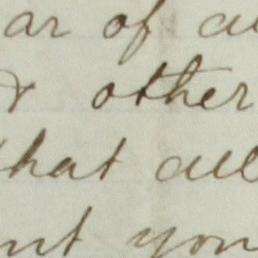 ar of al
& other
that all
nt you